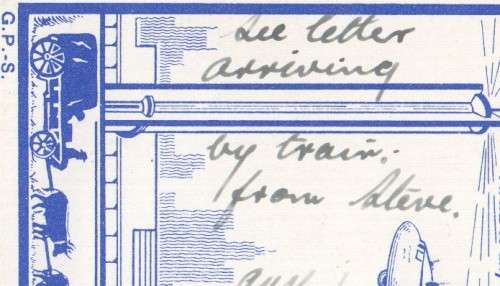 G.P.-S.
See letter
arriving
by train.
from Steve.